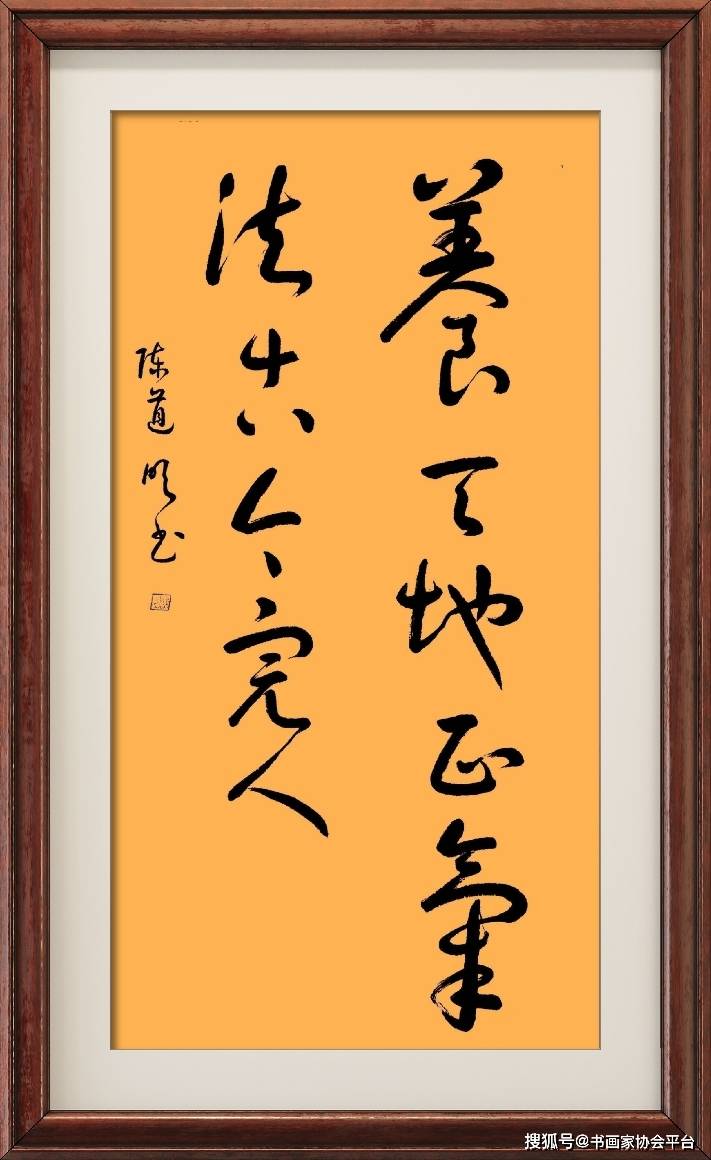 養天地正氣
法古今完人
陈道明书
搜狐号@书画家协会平台